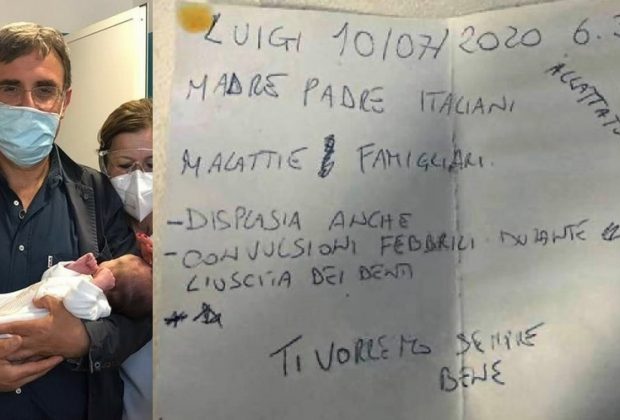 LUIGI 10/07/2020 6.3
ALLATTATO
MADRE PADRE ITALIANI
MALATTIE FAMIGLIARI.
- DISPLASIA ANCHE
- CONVULSIONI FEBBRILI DURANTE
L'USCITA DEI DENTI
TI VORREMO SEMPRE
BENE